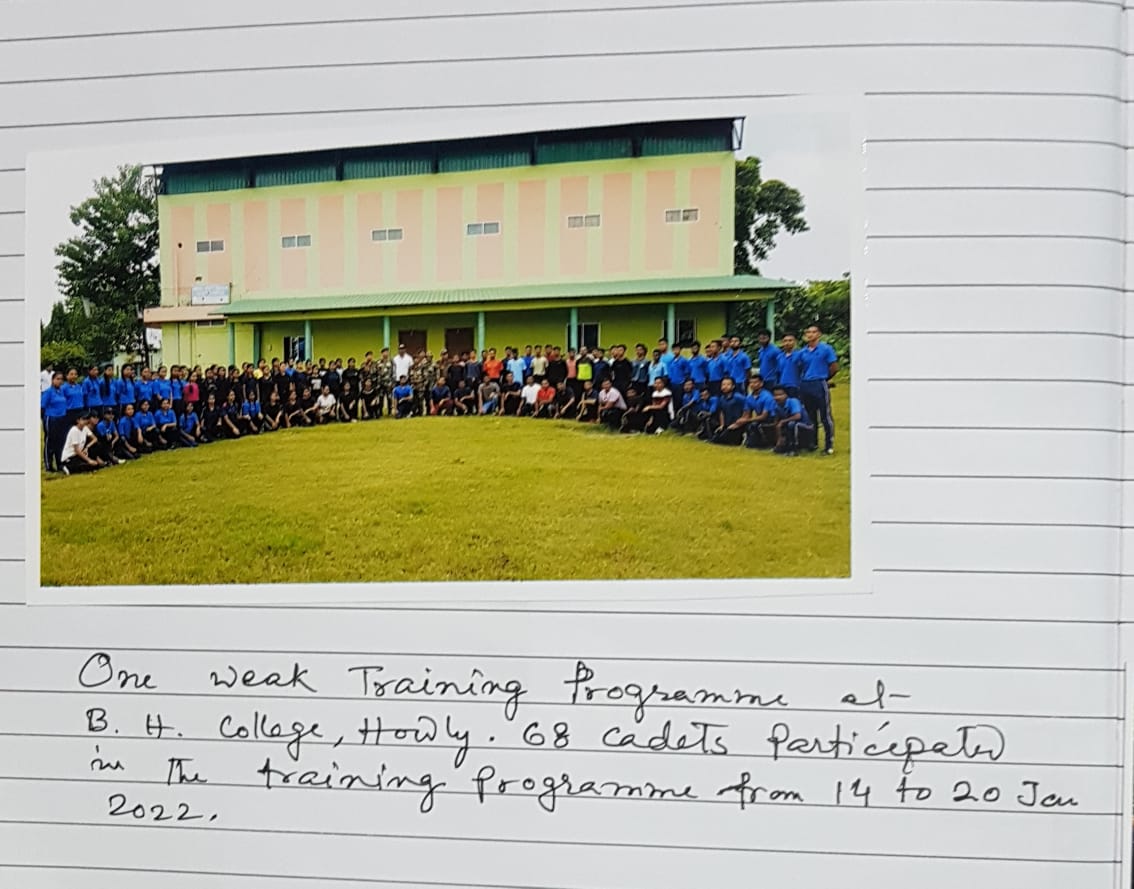 One weak Training Programme at
B. H. College, Howly. 68 cadets Participated
in The training programme from 14 to 20 Jan
2022.